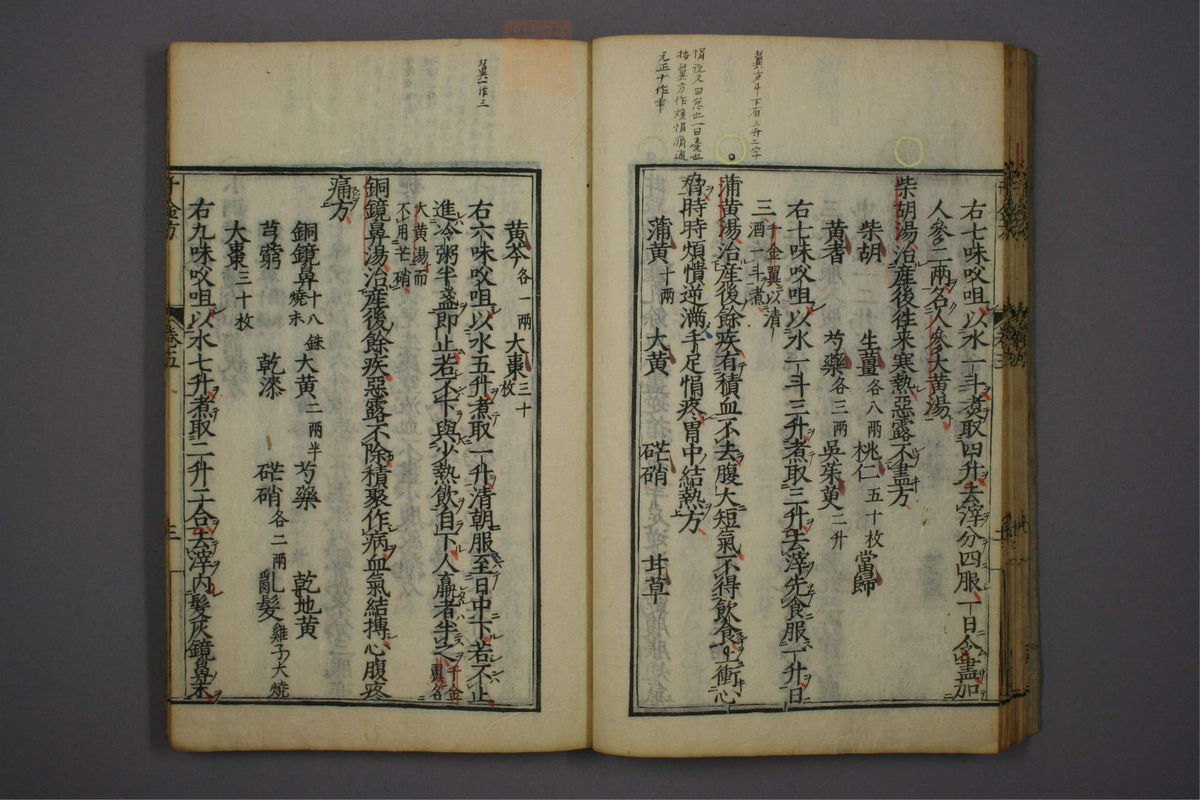 翼方斗下有三升二字
悁說文曰忿也一曰憂也
按翼方作煩悁痟通
元正十作率
右七味㕮咀以水一斗煮取四升去滓分四服一日令盡加
人參二兩名人參大黃湯
柴胡湯治産後往来寒熱惡露不盡方
柴胡 生薑各八兩 桃仁五十枚 當歸
黃耆 芍藥各三兩 吳茱萸二升
右七味㕮咀以水一斗三升煮取三升去滓先食服一升日
三千金翼以清酒一斗煮
蒲黃湯治産後餘疾有積血不去腹大短氣不得飲食上衝心
脅時時煩憒逆滿手足悁疼胃中結熱方
蒲黃十兩 大黃 硭硝 甘草
翼一作三
黃芩各一兩 大棗三十枚
右六味㕮咀以水五升煮取一升清朝服至日中下若不止
進冷粥半盞即止若不下與少熱飲自下人羸者半之千金翼名
大黃湯而不用芒硝
銅鏡鼻湯治産後餘疾惡露不除積聚作病血氣結摶心腹疼
痛方
銅鏡鼻十八銖燒末 大黃二兩半 芍藥 乾地黃
芎藭 乾漆 硭硝各二兩 亂髮雞子大燒
大棗三十枚
右九味㕮咀以水七升煮取二升二合去滓内髮灰鏡鼻末
千金方 卷五 三